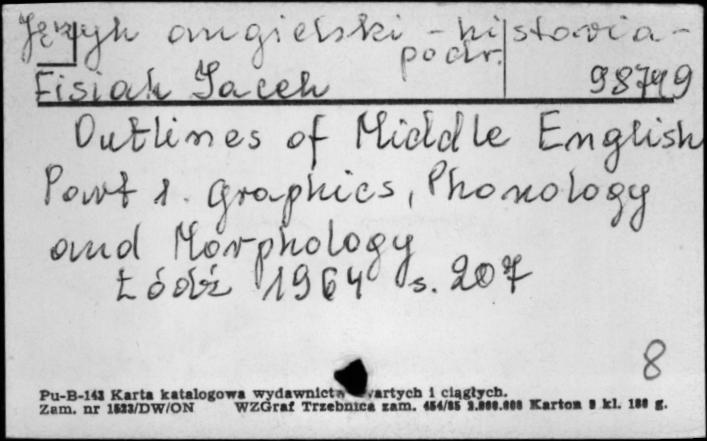 Język angielski - historia -
podr.
Fisiak Jacek 98749
Outlines of Middle English
Part 1. Graphics, Phonology
and Morphology
Łódź 1964 s. 207
8
Pu-B-143 Karta katalogowa wydawnictw zwartych i ciągłych.
Zam. nr 1523/DW/ON WZGraf Trzebnica zam. 454/85 Karton kl. g.